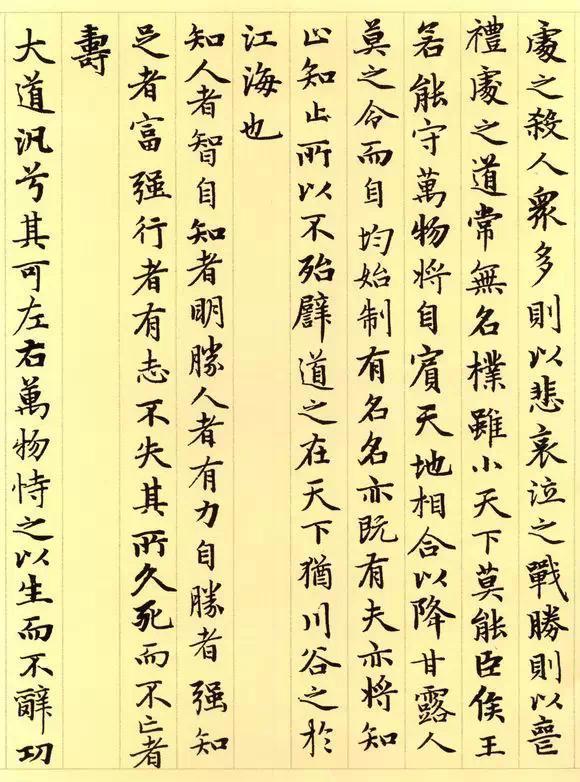 處之殺人眾多則以悲哀泣之戰勝則以喪
禮處之道常無名樸雖小天下莫能臣侯王
若能守萬物將自賓天地相合以降甘露人
莫之令而自均始制有名名亦既有夫亦將知
止知止所以不殆譬道之在天下猶川谷之於
江海也
知人者智自知者明勝人者有力自勝者强知
足者富强行者有志不失其所久死而不亡者
壽
大道汎兮其可左右萬物恃之以生而不辭功